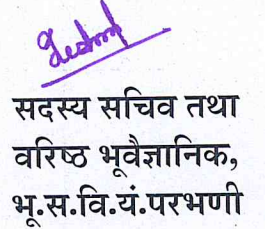 सदस्य सचिव तथा
वरिष्ठ भूवैज्ञानिक,
भू.स.वि.यं.परभणी